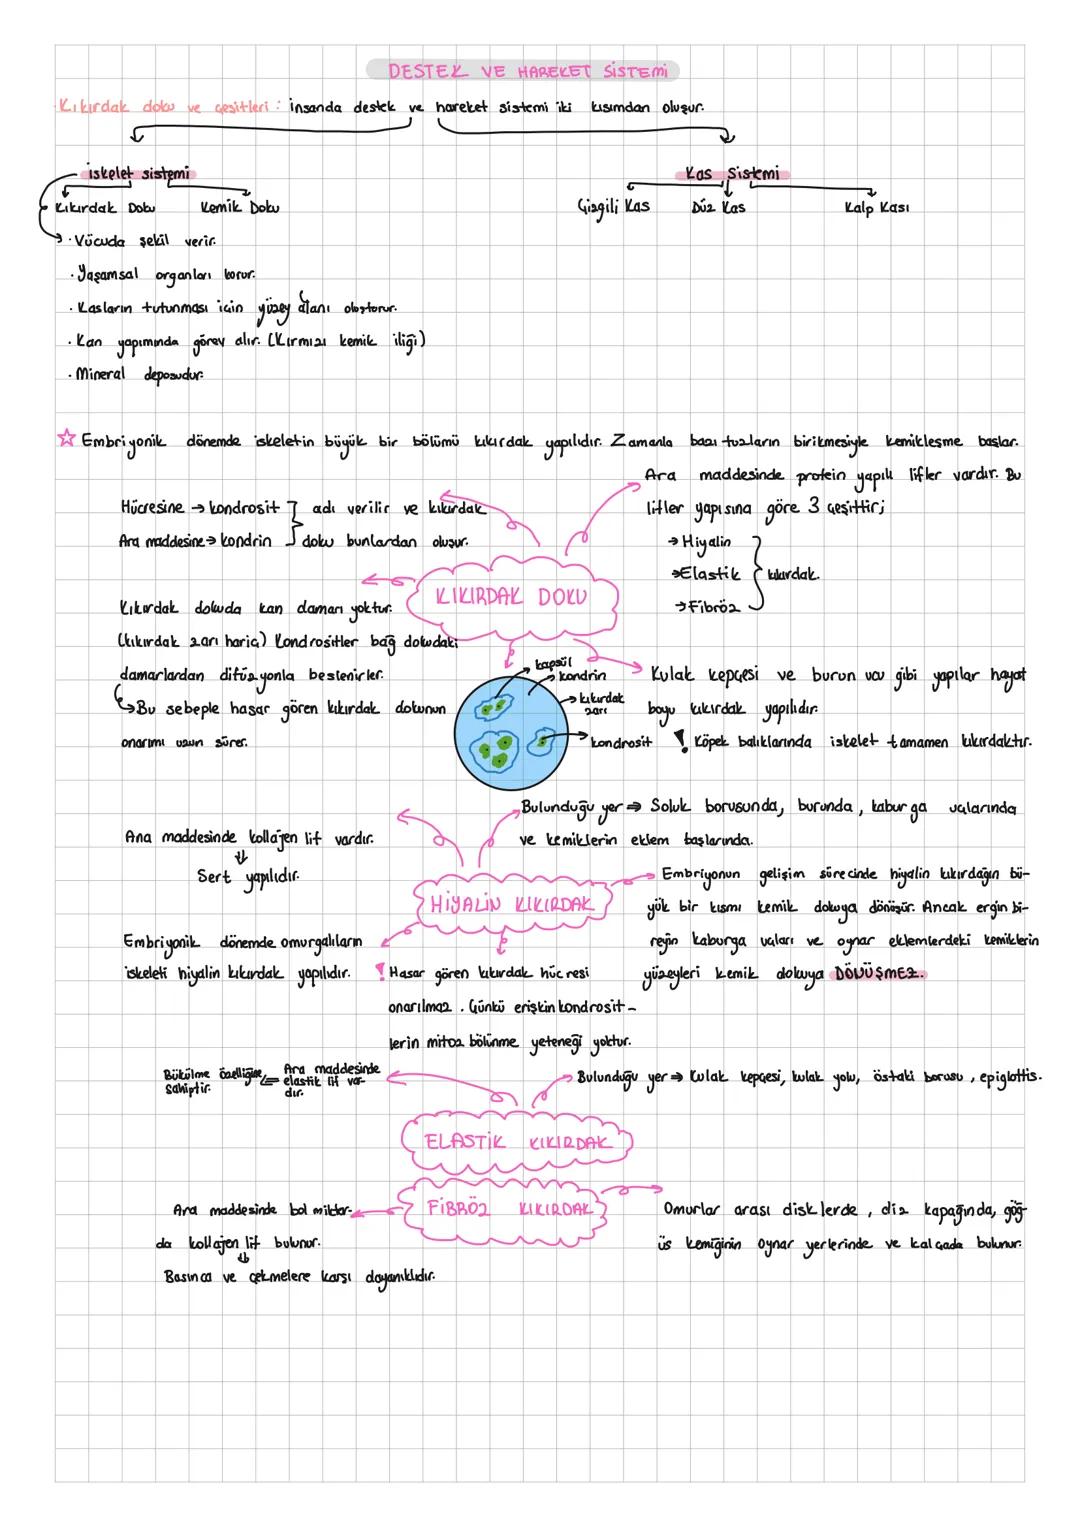 DESTEK VE HAREKET SİSTEMİ
Kıkırdak doku ve çeşitleri : İnsanda destek ve hareket sistemi iki kısımdan oluşur.
İskelet sistemi
Kas Sistemi
Kıkırdak Doku
Kemik Doku
Çizgili Kas
Düz Kas
Kalp Kası
· Vücuda şekil verir.
· Yaşamsal organları korur.
· Kasların tutunması için yüzey alanı oluşturur.
· Kan yapımında görev alır. (Kırmızı kemik iliği)
· Mineral deposudur.
☆ Embriyonik dönemde iskeletin büyük bir bölümü kıkırdak yapılıdır. Zamanla bazı tuzların birikmesiyle kemikleşme başlar.
Ara maddesinde protein yapılı lifler vardır. Bu
lifler yapısına göre 3 çeşittir;
→ Hiyalin
→ Elastik
→ Fibröz
kıkırdak.
Hücresine → kondrosit
Ara maddesine → kondrin
adı verilir ve kıkırdak
doku bunlardan oluşur.
KIKIRDAK DOKU
Kıkırdak dokuda kan damarı yoktur.
(kıkırdak zarı hariç) Kondrositler bağ dokudaki
damarlardan difüzyonla beslenirler.
→ Bu sebeple hasar gören kıkırdak dokunun
onarımı uzun sürer.
kapsül
kondrin
kıkırdak
zarı
kondrosit
Kulak kepçesi ve burun ucu gibi yapılar hayat
boyu kıkırdak yapılıdır.
! Köpek balıklarında iskelet tamamen kıkırdaktır.
Bulunduğu yer ⇒ Soluk borusunda, burunda, kaburga uçlarında
ve kemiklerin eklem başlarında.
Ana maddesinde kollajen lif vardır.
⇓
Sert yapılıdır.
HİYALİN KIKIRDAK
Embriyonun gelişim sürecinde hiyalin kıkırdağın bü-
yük bir kısmı kemik dokuya dönüşür. Ancak ergin bi-
reyin kaburga uçları ve oynar eklemlerdeki kemiklerin
yüzeyleri kemik dokuya DÖNÜŞMEZ.
Embriyonik dönemde omurgalıların
iskeleti hiyalin kıkırdak yapılıdır.
! Hasar gören kıkırdak hücresi
onarılmaz. Çünkü erişkin kondrosit-
lerin mitoz bölünme yeteneği yoktur.
Bükülme özelliğine
sahiptir.
⇐
Ara maddesinde
elastik lif var-
dır.
Bulunduğu yer ⇒ Kulak kepçesi, kulak yolu, östaki borusu, epiglottis.
ELASTİK KIKIRDAK
FİBRÖZ KIKIRDAK
Ara maddesinde bol miktar-
da kollajen lif bulunur.
⇓
Basınca ve çekmelere karşı dayanıklıdır.
Omurlar arası disklerde, diz kapağında, göğ-
üs kemiğinin oynar yerlerinde ve kalçada bulunur.